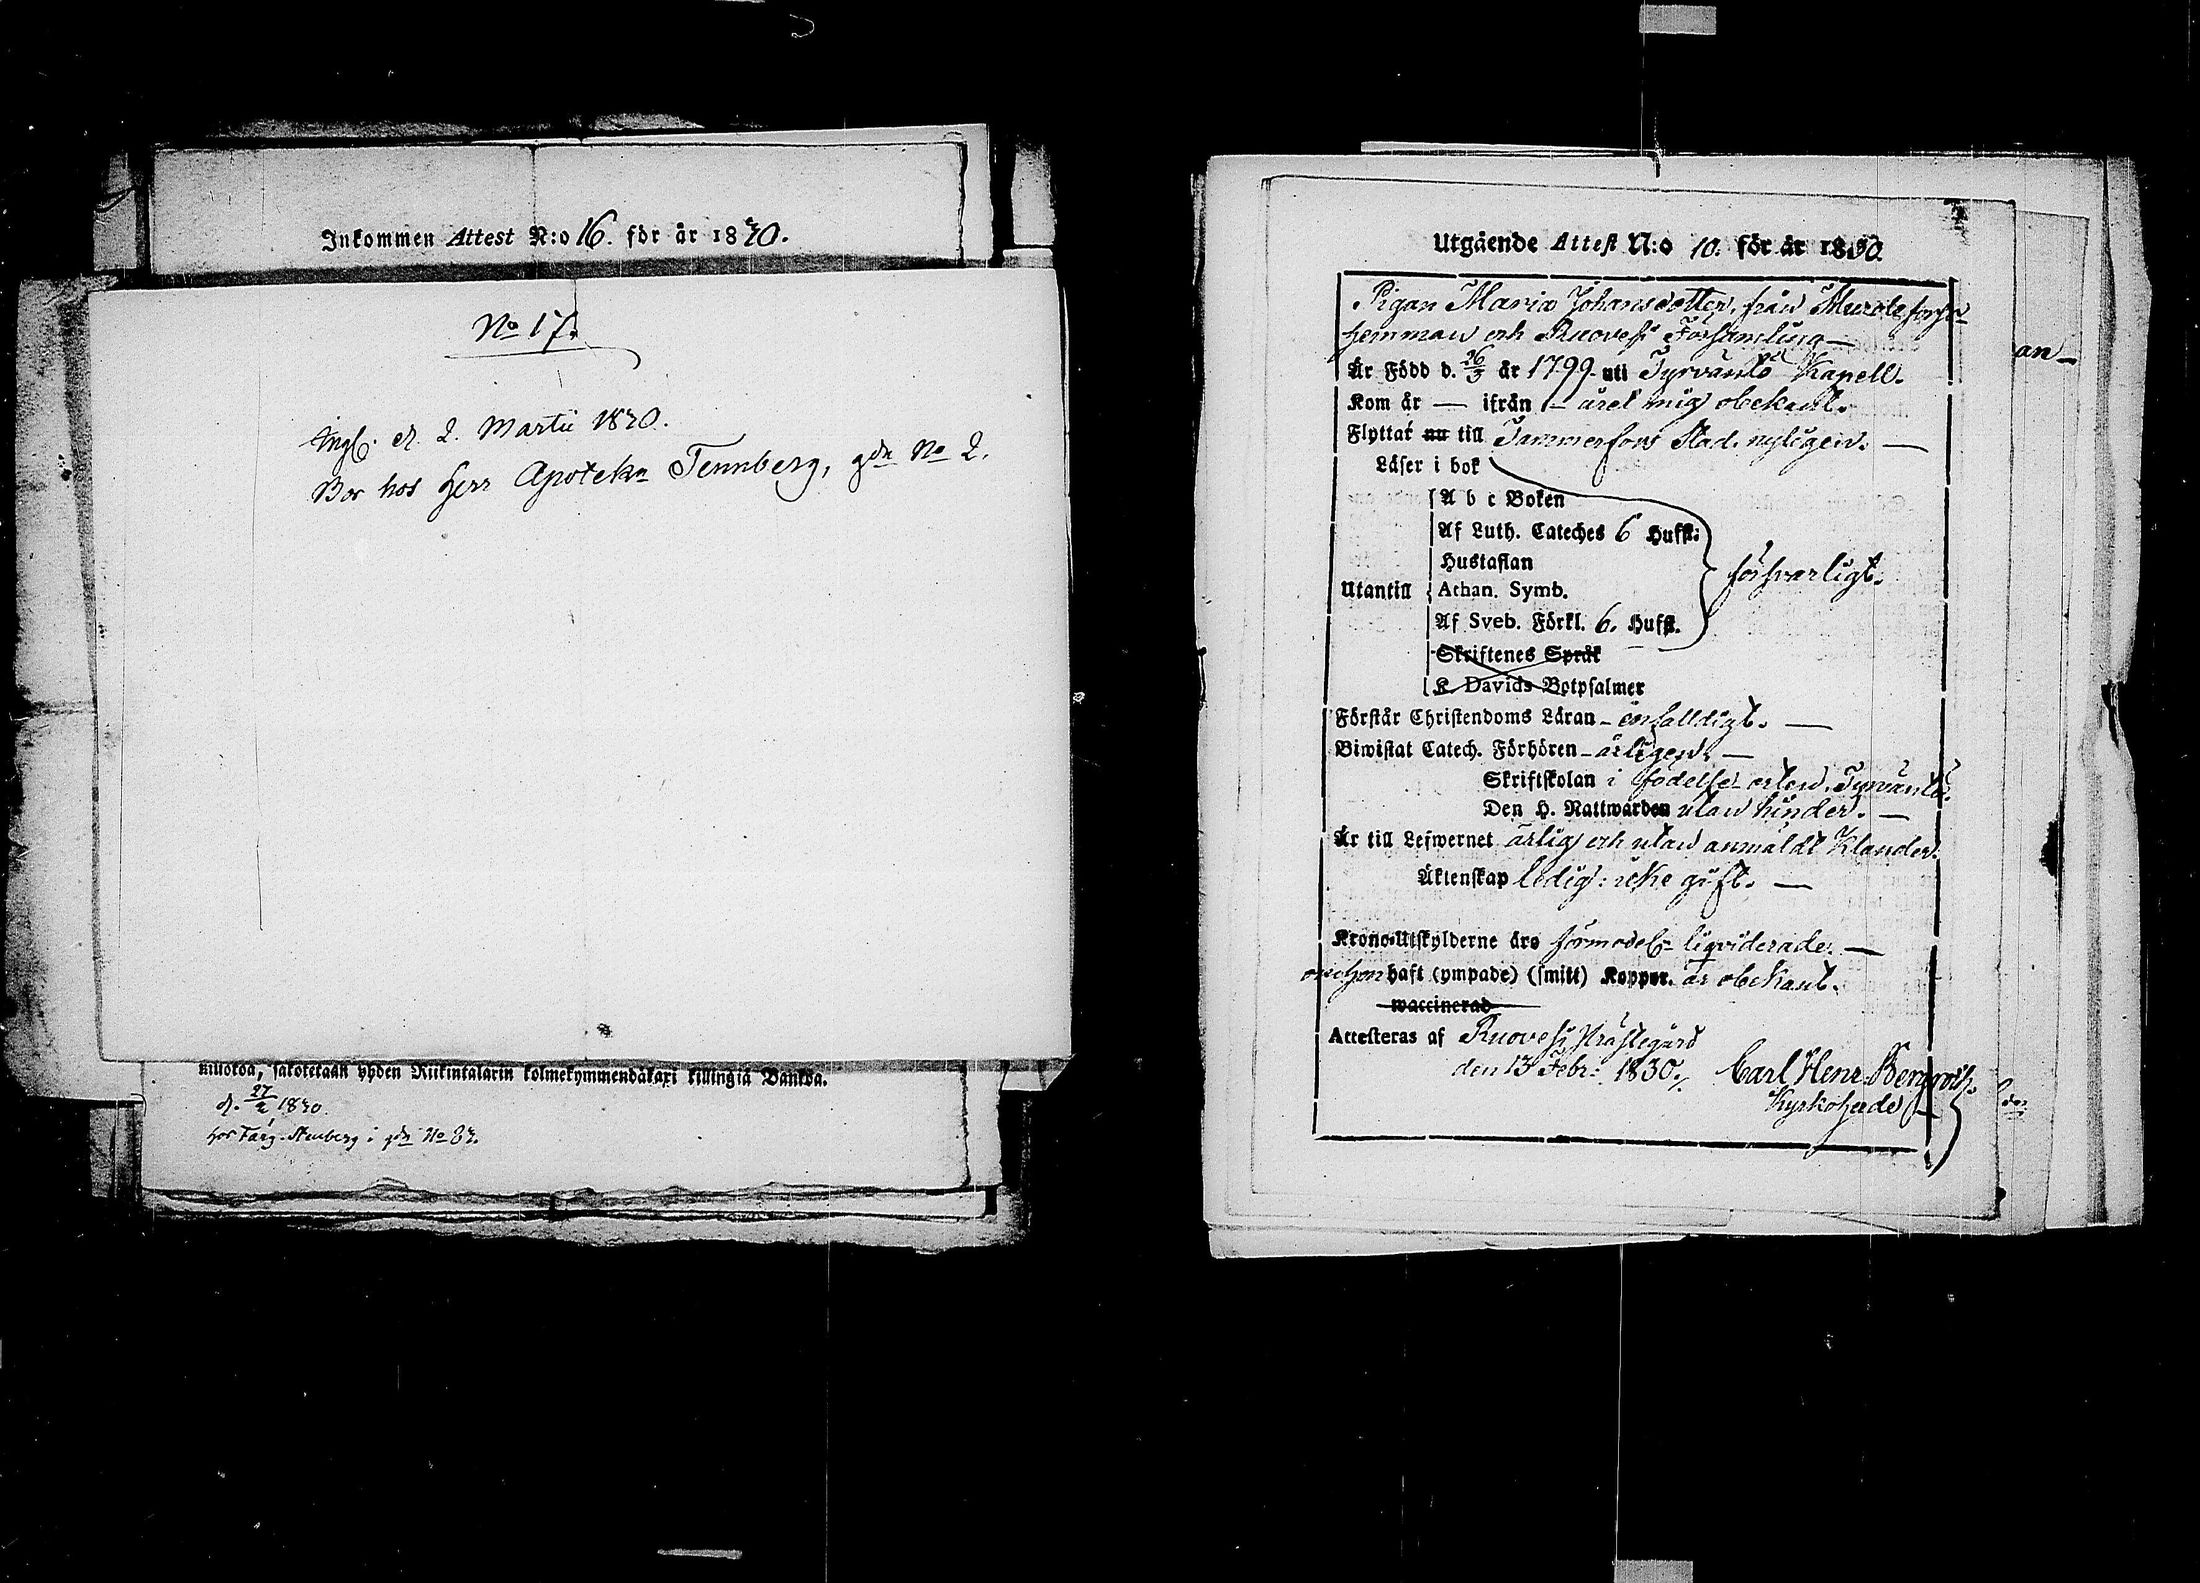 Inkommen Attest N:o 16. för år 1830.
No 17.
Ingl. d. 2. Martii 1830.
Bor hos Herr Apotekn Tennberg, gdn No 2.
killotoa, sakotetaan yhden Riikintalarin kolmekymmendäkaxi killingiä Bankoa.
d. 27/2 1830.
hos Färg. Stenberg i gdn No 83.
Utgående Attest N:o 10. för år 1830.
Pigan Maria Johansdotter, från Muroleforss
hemman och Ruovesi Församling —
Är Född d. 26/3 år 1799 uti Tyrväntö Kapell.
Kom år — ifrån — året mig obekant.
Flyttat nu till Tammerfors Stad nyligen. —
Läser i bok
A b c Boken
Af Luth. Cateches 6 Hufst:
Hustaflan
Utantill Athan. Symb.
försvarligt.
Af Sveb. Förkl. 6. Hufst.
Skriftenes Språk
K. Davids Botpsalmer
Förstår Christendoms Läran — enfalldigt. —
Biwistat Catech. Förhören — årligen. —
Skriftskolan i födelse orten Tyrväntö.
Den H. Nattwarden utan hinder. —
Är till Lefwernet ärlig och utan anmäldt Klander.
Äktenskap ledig: icke gift. —
Krono-Utskylderne äro förmodel. liqviderade. —
om hon haft (ympade) (smitt) Koppor. är obekant.
waccinerad
Attesteras af Ruovesi Prästegård
den 13 Febr: 1830./. Carl Henr. Bergroth.
Kyrkoherde
an —